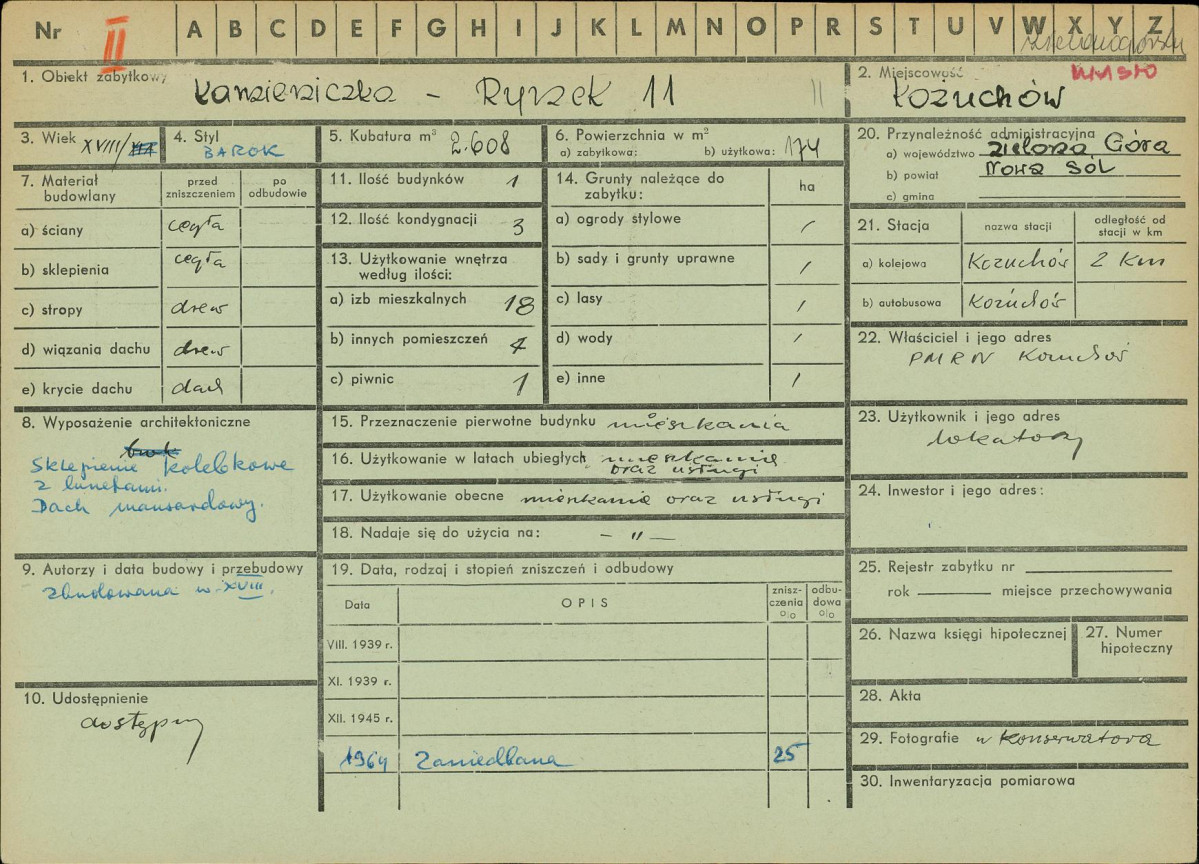 Nr II A B C D E F G H I J K L M N O P R S T U V W X Y Z
zielonogórskie
1. Obiekt zabytkowy
Kamieniczka – Rynek 11
11
2. Miejscowość
MIASTO
Kożuchów
3. Wiek XVIII/XIX
4. Styl
BAROK
5. Kubatura m³ 2.608
6. Powierzchnia w m²
a) zabytkowa: b) użytkowa: 174
20. Przynależność administracyjna
a) województwo Zielona Góra
b) powiat Nowa Sól
c) gmina
7. Materiał budowlany
przed zniszczeniem
po odbudowie
a) ściany cegła
b) sklepienia cegła
c) stropy drew
d) wiązania dachu drew
e) krycie dachu dach
11. Ilość budynków 1
12. Ilość kondygnacji 3
13. Użytkowanie wnętrza
według ilości:
a) izb mieszkalnych 18
b) innych pomieszczeń 4
c) piwnic 1
14. Grunty należące do
zabytku:
ha
a) ogrody stylowe /
b) sady i grunty uprawne /
c) lasy /
d) wody /
e) inne /
21. Stacja
nazwa stacji
odległość od
stacji w km
a) kolejowa Kożuchów 2 km
b) autobusowa Kożuchów
22. Właściciel i jego adres
PMRN Kożuchów
8. Wyposażenie architektoniczne
Sklepienie kolebkowe
z lunetami.
Dach mansardowy.
15. Przeznaczenie pierwotne budynku mieszkania
16. Użytkowanie w latach ubiegłych mieszkanie
oraz usługi
17. Użytkowanie obecne mieszkanie oraz usługi
18. Nadaje się do użycia na: – " –
23. Użytkownik i jego adres
lokatorzy
24. Inwestor i jego adres:
9. Autorzy i data budowy i przebudowy
zbudowana w XVIII.
10. Udostępnienie
dostępny
19. Data, rodzaj i stopień zniszczeń i odbudowy
Data
OPIS
znisz-
czenia
%
odbu-
dowa
%
VIII. 1939 r.
XI. 1939 r.
XII. 1945 r.
1964 Zaniedbana 25
25. Rejestr zabytku nr
rok miejsce przechowywania
26. Nazwa księgi hipotecznej
27. Numer
hipoteczny
28. Akta
29. Fotografie u Konserwatora
30. Inwentaryzacja pomiarowa